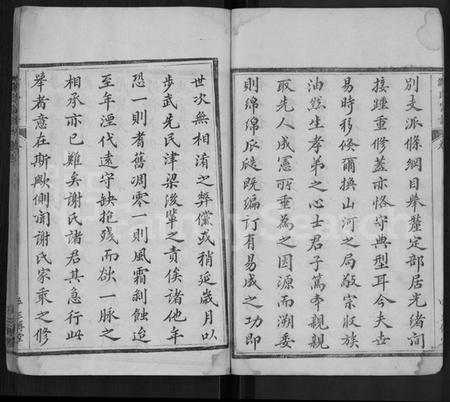 別支派條綱目舉釐定部居光緒間
接踵重修蓋亦恪守典型耳今夫世
易時移倏爾換山河之局敬宗收族
油然生孝弟之心士君子篤本親親
取先人成憲所重為之因源而溯委
則綿綿瓜瓞既編訂有易成之功即
世次無相淆之弊儻或稍延歲月以
步武先民津梁後輩之責俟諸他年
恐一則耆舊凋零一則風霜剝蝕迨
至年湮代遠守缺抱殘而欲一脈之
相承亦已難矣謝氏諸君其急行此
舉者意在斯歟側聞謝氏家乘之修